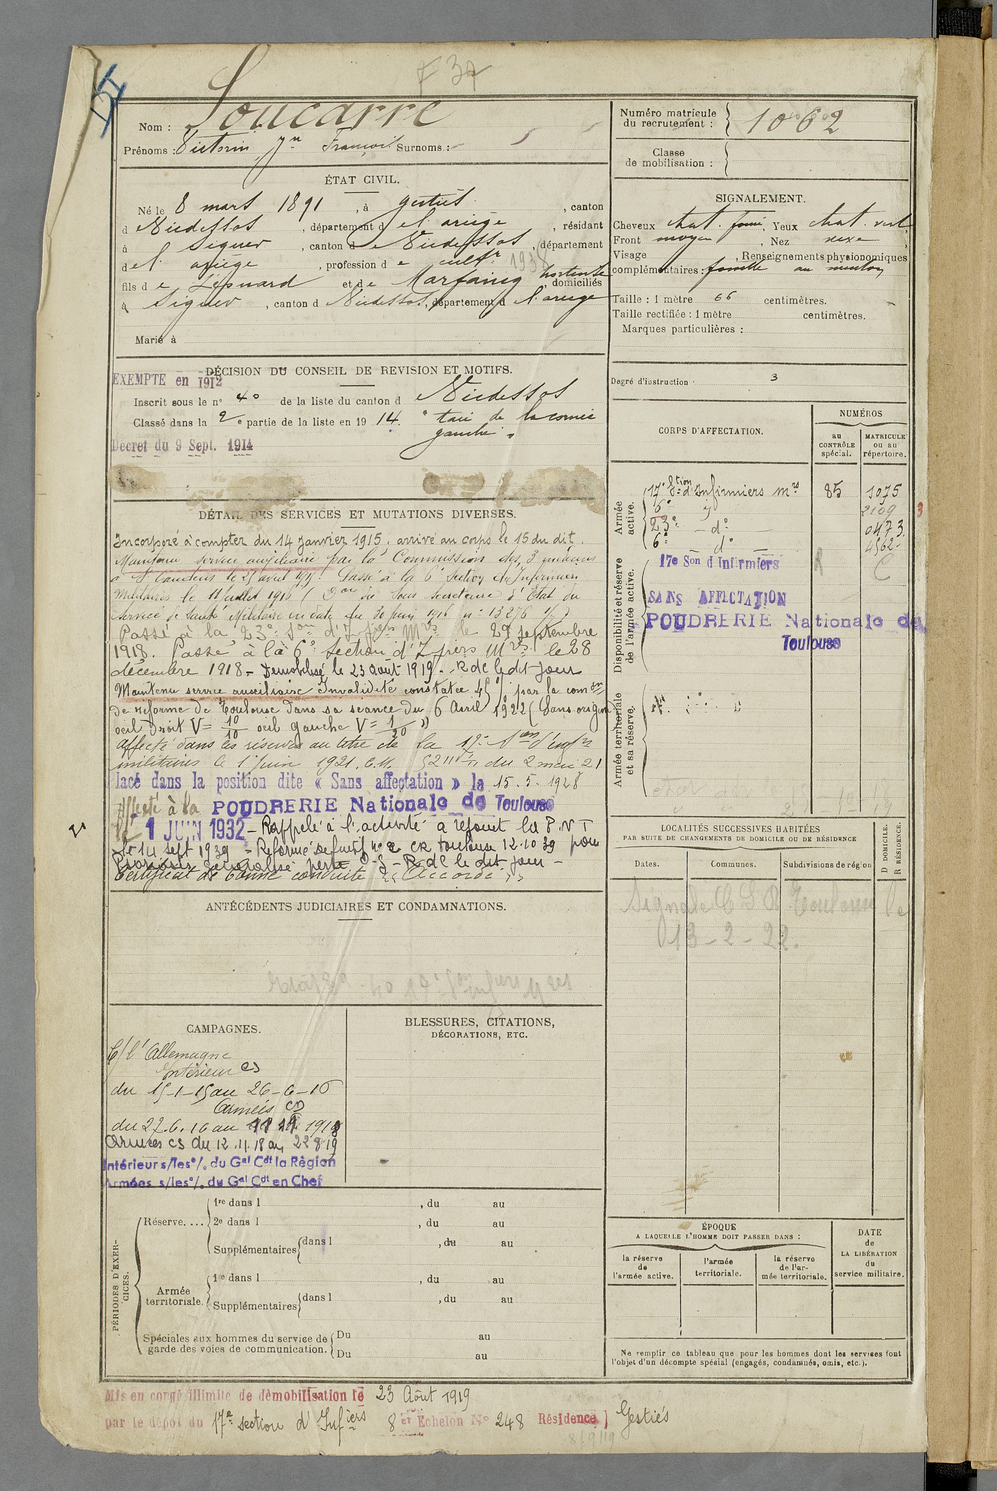 F 37
Nom : Soucarre
Prénoms : Victorin Jn François Surnoms :
Numéro matricule
du recrutement : 1062
Classe
de mobilisation :
ÉTAT CIVIL.
Né le 8 mars 1891, à Gestiès, canton
d Vicdessos, département d e l'ariège, résidant
à Siguer, canton d e Vicdessos, département
d e l'ariège, profession d e cultr 1938
fils d e Léonard et d e Marfaing hortense domiciliés
à Siguer, canton d Vicdessos, département d l'ariège
Marié à
SIGNALEMENT.
Cheveux chat. foncé, Yeux chat. vert
Front moyen, Nez
Visage , Renseignements physionomiques
complémentaires : fossette au menton
Taille : 1 mètre 66 centimètres.
Taille rectifiée : 1 mètre centimètres.
Marques particulières :
Degré d'instruction : 3
DÉCISION DU CONSEIL DE REVISION ET MOTIFS.
EXEMPTE en 1912
Inscrit sous le n° 40 de la liste du canton d Vicdessos
Classé dans la 2e partie de la liste en 1914. "taie de la cornée
gauche"
Decret du 9 Sept. 1914
CORPS D'AFFECTATION.
NUMÉROS
au
CONTRÔLE
spécial.
MATRICULE
ou au
répertoire.
Armée
active.
17e Stion d'Infirmiers mres 85 1075
6e do 2109
23e do 0473
6e do 4562
Disponibilité et réserve
de l'armée active.
17e Son d'Infirmiers
SANS AFFECTATION
POUDRERIE Nationale de
Toulouse
Armée territoriale
et sa réserve.
DÉTAIL DES SERVICES ET MUTATIONS DIVERSES.
Incorporé à compter du 14 janvier 1915, arrivé au corps le 15 du dit.
Maintenu service auxiliaire par la Commission des 3 médecins
à St Gaudens le avril 1915. Passé à la 6e Section d'Infirmiers
Militaires le 11 juillet 1916 ( Don du Sous Secrétaire d'Etat du
Service de Santé Militaire en date du 30 juin 1916 no 13276 /7)
Passé à la 23e Son d'Infirs Mres le 29 septembre
1918. Passé à la 6e Section d'Infiers Mres le 28
décembre 1918 - Démobilisé le 23 août 1919. R de le dit jour
Maintenu service auxiliaire Invalidité constatée 45 % par la comon
de réforme de Toulouse dans sa séance du 6 Avril 1922 (Sans origine
oeil droit V = 10/10 oeil gauche V = 1/20 »)
affecté dans les réserves au titre de la 17e Son d'infirs
militaires le 1er juin 1921. C.M. 5211 du 2 mai 21
lacé dans la position dite « Sans affectation » le 15.5.1928
Affecté à la POUDRERIE Nationale de Toulouse
le 1 JUIN 1932 - Rappelé à l'activité a rejoint la P N T
le 14 sept 1939 - Réformé définitif no 2 CR Toulouse 12.10.39 pour
perte O.G - R. de le dit jour -
Certificat de bonne conduite "Accordé"
LOCALITÉS SUCCESSIVES HABITÉES
PAR SUITE DE CHANGEMENTS DE DOMICILE OU DE RÉSIDENCE
Dates.
Communes.
Subdivisions de région
D DOMICILE.
R RÉSIDENCE.
Signalé C S R Toulouse le
13-2-22.
ANTÉCÉDENTS JUDICIAIRES ET CONDAMNATIONS.
CAMPAGNES.
C/ l'Allemagne
Intérieur CS
du 15-1-15 au 26-6-16
Armées CD
du 27.6.16 au 11 11 1918
Armées CS du 12.11.18 au 22 8 19
Intérieur s/les o/. du Gal Cdt la Région
Armées s/les o/. du Gal Cdt en Chef
BLESSURES, CITATIONS,
DÉCORATIONS, ETC.
PÉRIODES D'EXER-
CICES.
Réserve....
1re dans l , du au
2e dans l , du au
Supplémentaires dans l , du au
Armée
territoriale.
1re dans l , du au
Supplémentaires dans l , du au
Spéciales aux hommes du service de
garde des voies de communication.
Du au
Du au
ÉPOQUE
A LAQUELLE L'HOMME DOIT PASSER DANS :
la réserve
de
l'armée active.
l'armée
territoriale.
la réserve
de l'ar-
mée territoriale.
DATE
de
LA LIBÉRATION
du
service militaire.
Ne remplir ce tableau que pour les hommes dont les services font
l'objet d'un décompte spécial (engagés, condamnés, omis, etc.).
Mis en congé illimité de démobilisation le 23 Août 1919
par le dépôt du 17e section d'Infiers 8 et Echelon No 248 Résidence) Gestiès